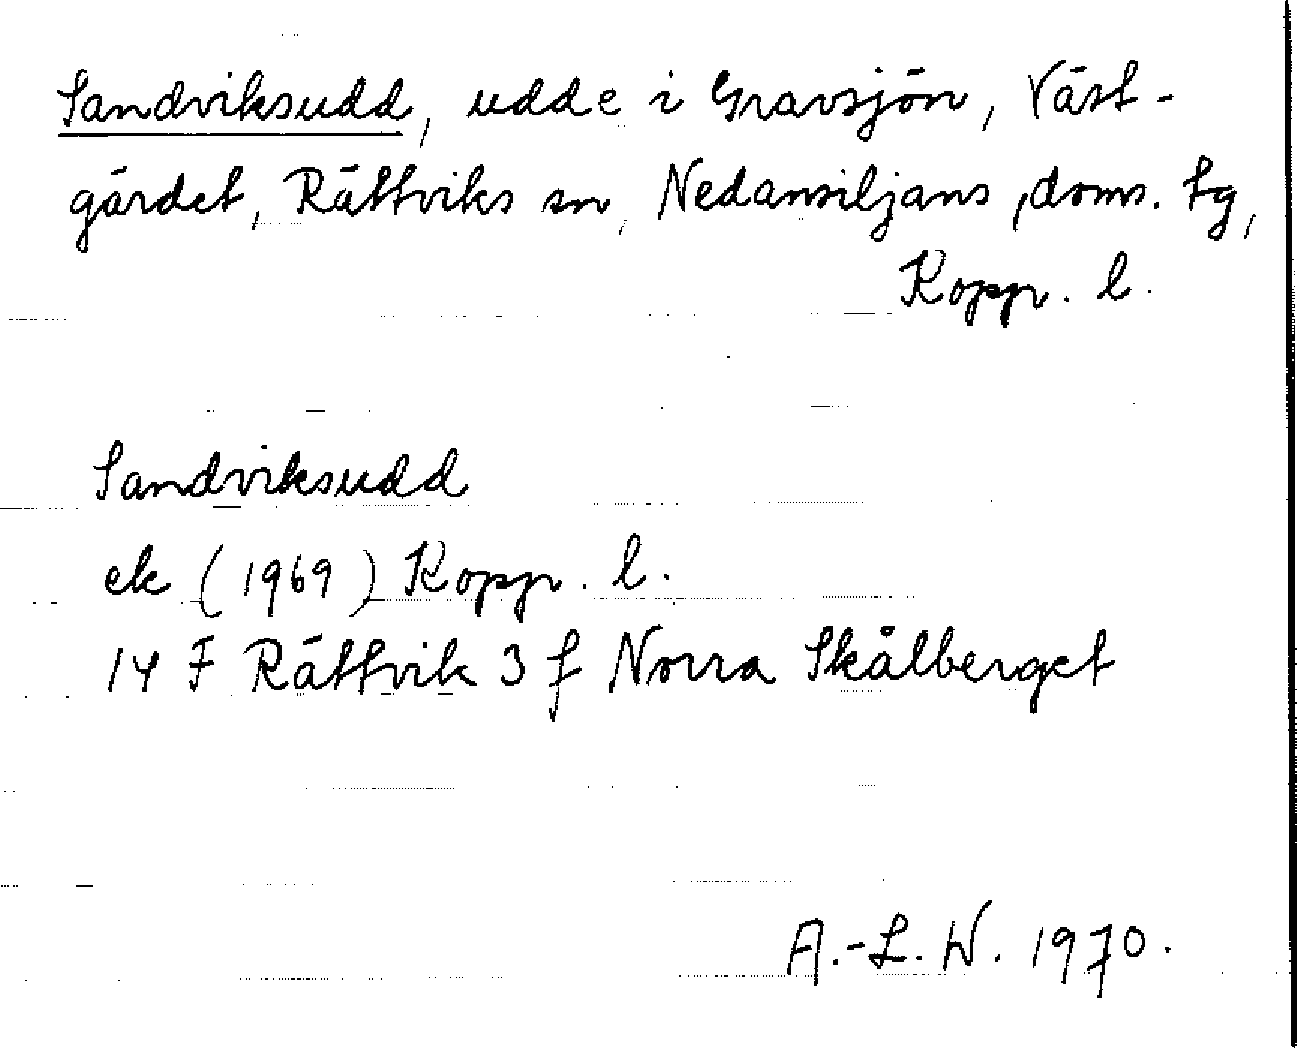 Sandviksudd, udde i Gravsjön, Väst-
gärdet, Rättviks sn, Nedansiljans doms. tg,
Kopp. l.
Sandviksudd
ek (1969) Kopp. l.
14 F Rättvik 3 f Norra Skålberget
A.-L. W. 1970.